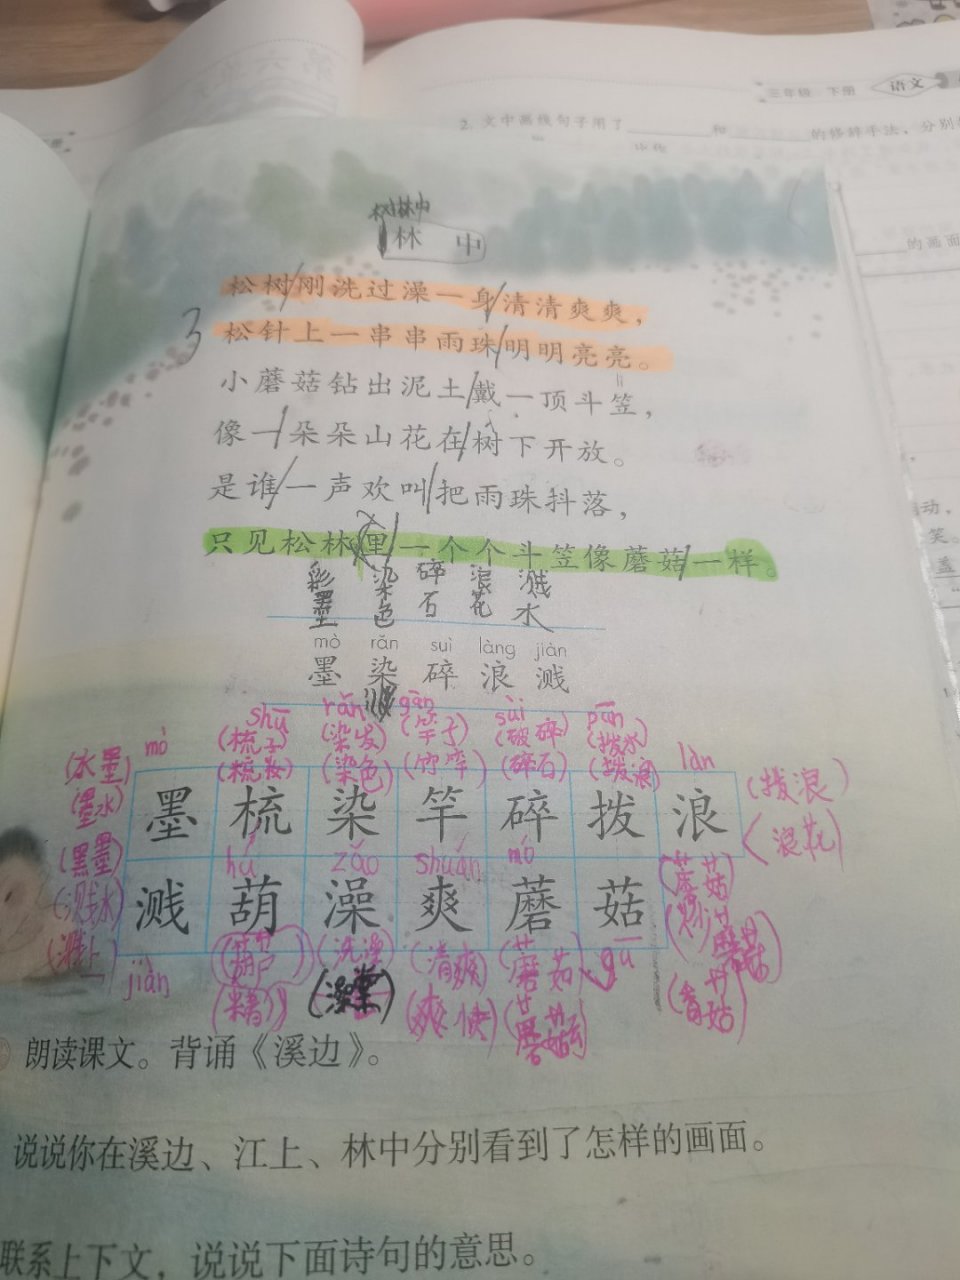 三年级 下册 语文
2. 文中画线句子用了 和 的修辞手法，分别
的画面
树林中
林 中
松树刚洗过澡一身清清爽爽，
3
松针上一串串雨珠明明亮亮。
lì
小蘑菇钻出泥土戴一顶斗笠，
像一朵朵山花在树下开放。
是谁一声欢叫把雨珠抖落，
只见松林里一个个斗笠像蘑菇一样。
彩墨 染色 碎石 浪花 溅水
mò rǎn suì làng jiàn
墨 染 碎 浪 溅
mò shū rǎn gān suì pān làn
(水墨) (梳子) (染发) (竿子) (破碎) (拨水)
(墨水) (梳妆) (染色) (竹竿) (碎石) (拨浪) (拨浪)
墨 梳 染 竿 碎 拨 浪
(黑墨) (浪花)
hú zǎo shuǎn mó (蘑菇)
(溅水) 溅 葫 澡 爽 蘑 菇
(溅上) (葫芦) (洗澡) (清爽) (蘑菇) gū
jiàn (澡堂) (爽快) (香菇)
朗读课文。背诵《溪边》。
说说你在溪边、江上、林中分别看到了怎样的画面。
联系上下文，说说下面诗句的意思。